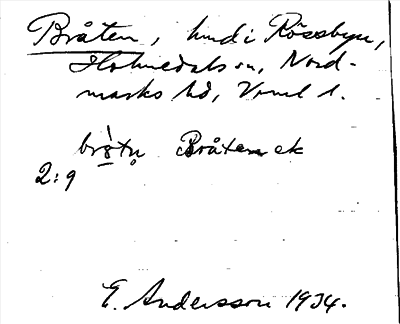 Bråten, hmd i Rössbyn,
Holmedals sn, Nord-
marks hd, Vrml l.
bròtn̥ Bråten ek
2:9
E. Andersson 1934.